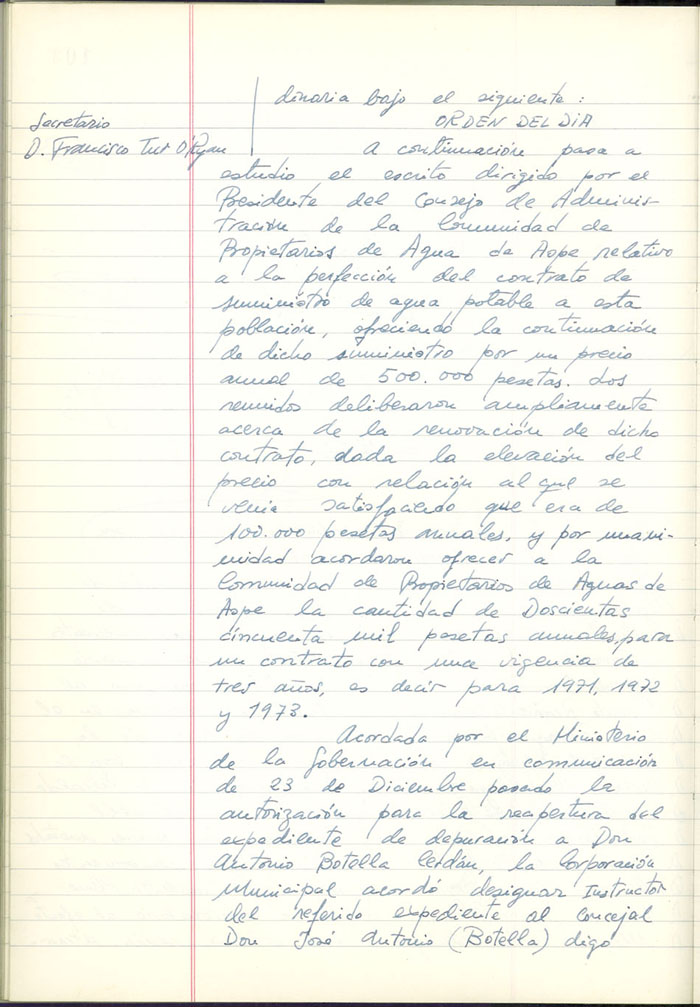 dinaria bajo el siguiente:
Secretario
ORDEN DEL DIA
D. Francisco Tur O'Ryan
A continuación pasa a
estudio el escrito dirigido por el
Presidente del Consejo de Adminis-
tración de la Comunidad de
Propietarios de Agua de Aspe relativo
a la perfección del contrato de
suministro de agua potable a esta
población, ofreciendo la continuación
de dicho suministro por un precio
anual de 500.000 pesetas. Los
reunidos deliberaron ampliamente
acerca de la renovación de dicho
contrato, dada la elevación del
precio con relación al que se
venia satisfaciendo que era de
100.000 pesetas anuales, y por unani-
midad acordaron ofrecer a la
Comunidad de Propietarios de Aguas de
Aspe la cantidad de Doscientas
cincuenta mil pesetas anuales, para
un contrato con una vigencia de
tres años, es decir para 1971, 1972
y 1973.
Acordada por el Ministerio
de la Gobernación en comunicación
de 23 de Diciembre pasado la
autorización para la reapertura del
expediente de depuración a Don
Antonio Botella Cerdán, la Corporación
Municipal acordó designar Instructor
del referido expediente al concejal
Don José Antonio (Botella) digo